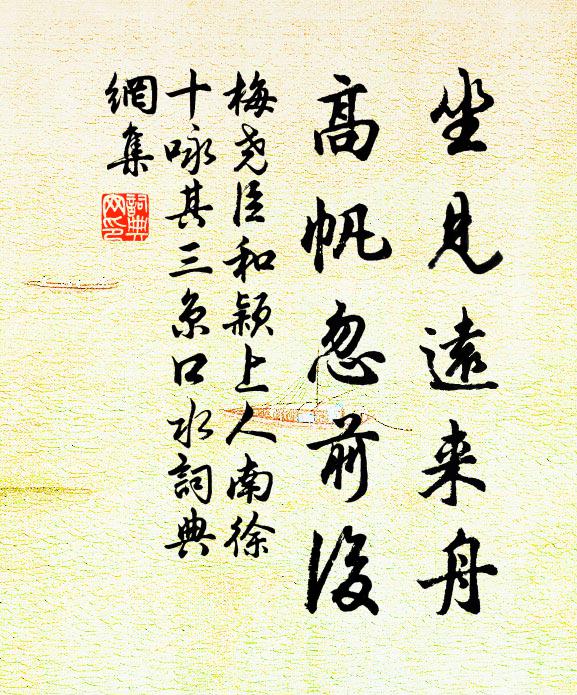 坐見遠来舟
高帆忽前後
梅堯臣和颖上人南徐
十咏其三京口水詞典
網集
詞典
网印